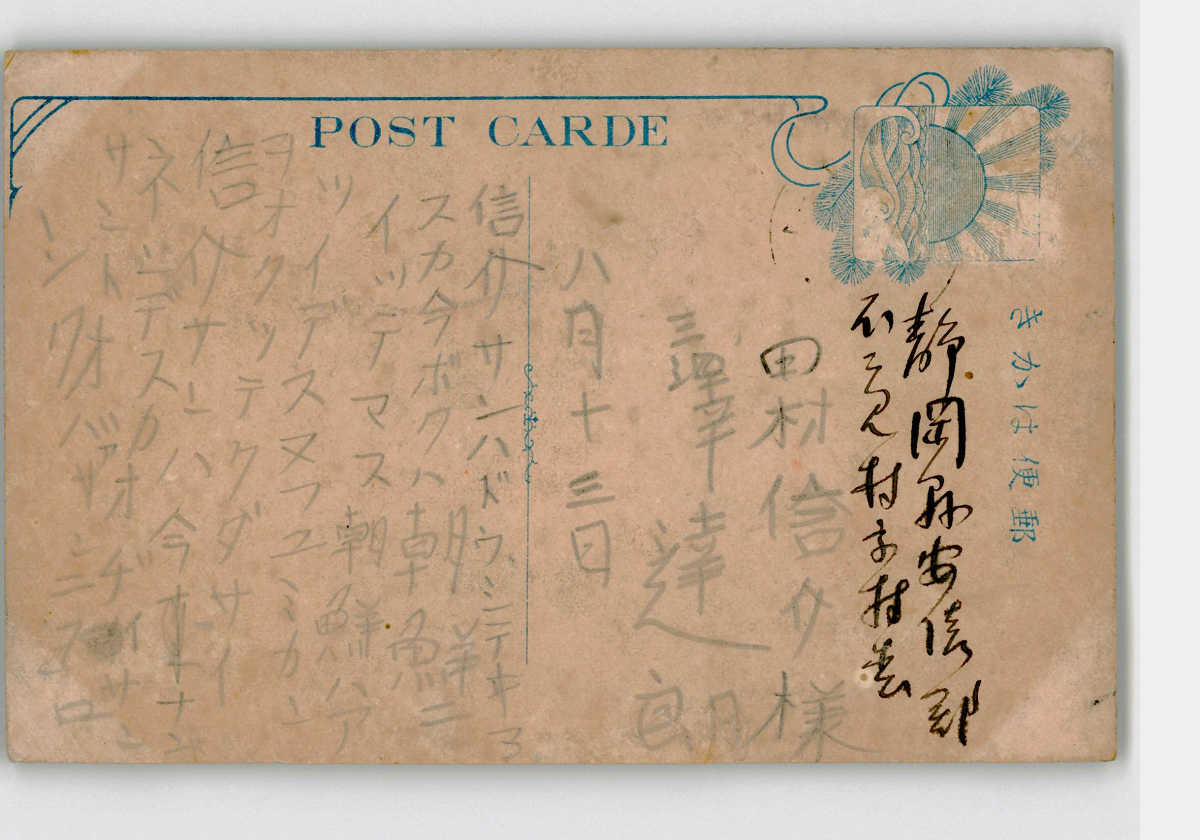 POST CARDE
郵便はかき
静岡縣安倍郡
不二見村字村松
田村信介様
三澤達郎
八月十三日
信介サンハドウシニテキマ
スカ今ボクハ朝鮮ニ
イッテマス朝鮮ハア
ツイデスヌフユミカン
ヲオクッテクダサイ
信介サンハ今
ネンデスカオヂイサン
サントオバアサンニヨロ